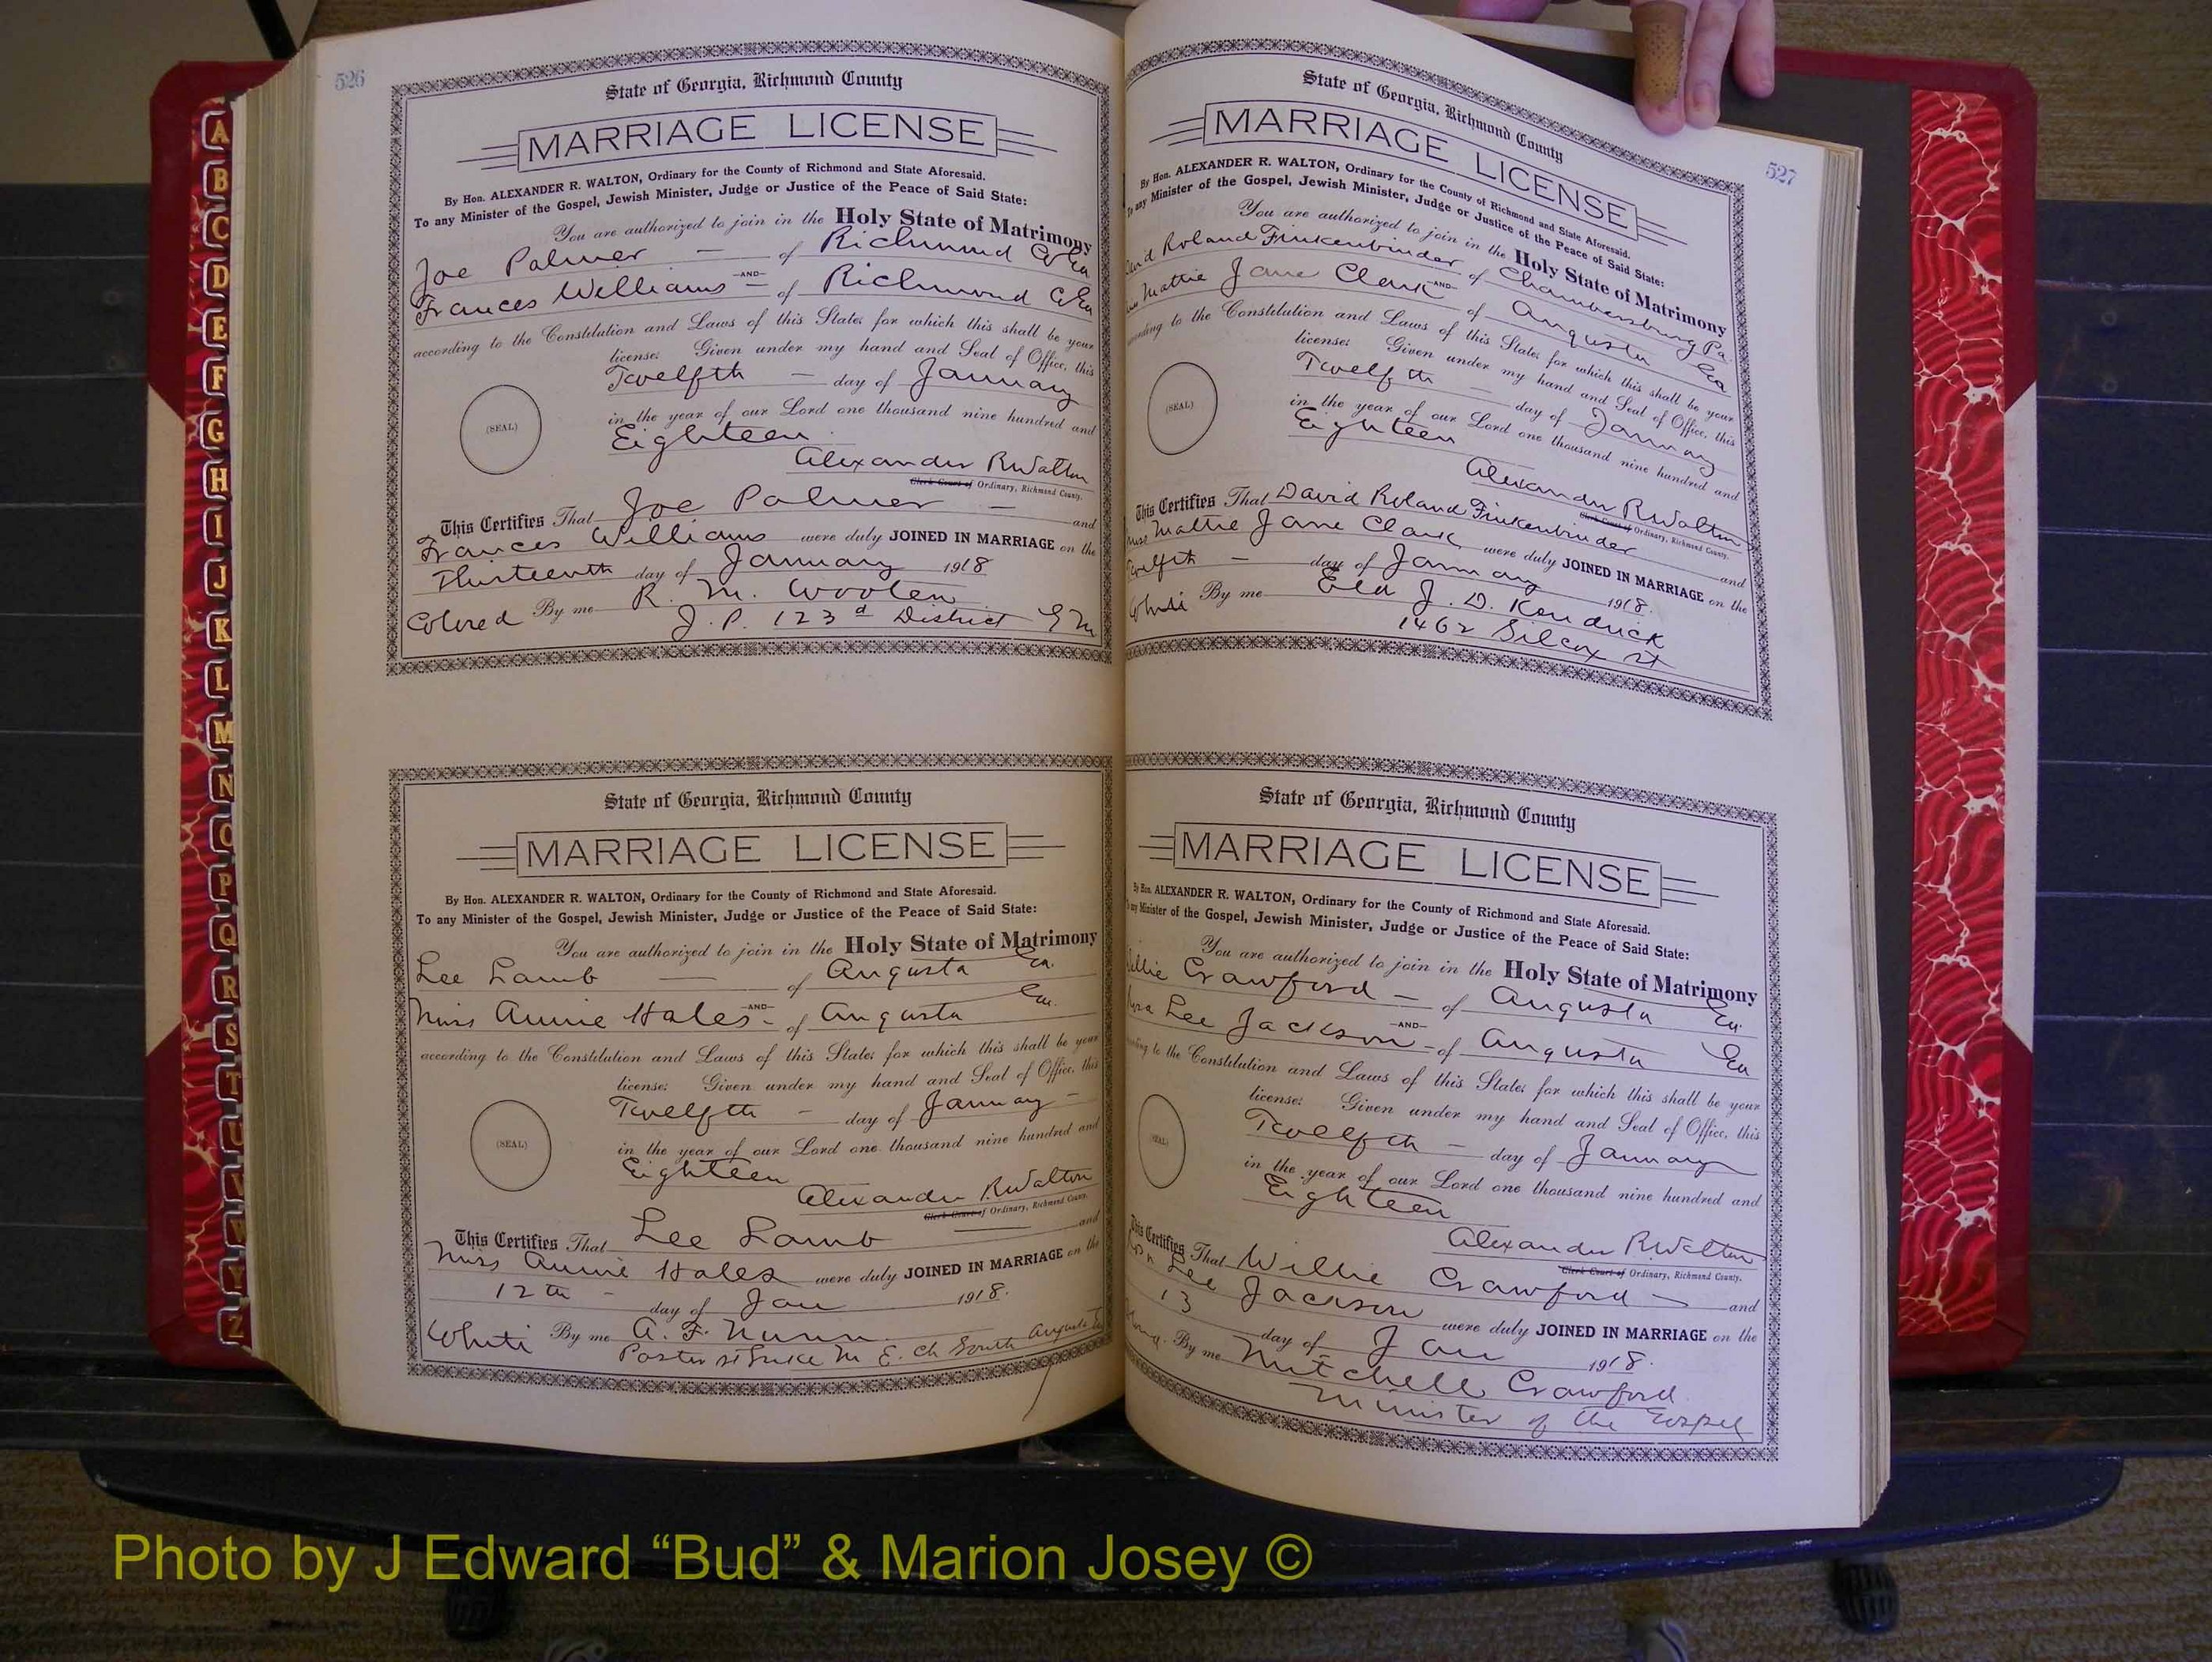 526
State of Georgia, Richmond County
MARRIAGE LICENSE
By Hon. ALEXANDER R. WALTON, Ordinary for the County of Richmond and State Aforesaid.
To any Minister of the Gospel, Jewish Minister, Judge or Justice of the Peace of Said State:
You are authorized to join in the Holy State of Matrimony
Joe Palmer — of Richmond Co Ga
—AND—
Frances Williams — of Richmond Co Ga
according to the Constitution and Laws of this State; for which this shall be your
license: Given under my hand and Seal of Office, this
Twelfth — day of January
in the year of our Lord one thousand nine hundred and
(SEAL)
Eighteen
Alexander R Walton
Clerk Court of Ordinary, Richmond County.
This Certifies That Joe Palmer — and
Frances Williams were duly JOINED IN MARRIAGE on the
Thirteenth day of January 1918
Colored By me R. M. Woolen
J. P. 123d District G M
State of Georgia, Richmond County
MARRIAGE LICENSE
By Hon. ALEXANDER R. WALTON, Ordinary for the County of Richmond and State Aforesaid.
To any Minister of the Gospel, Jewish Minister, Judge or Justice of the Peace of Said State:
You are authorized to join in the Holy State of Matrimony
Lee Lamb — of Augusta Ga.
—AND—
Miss Annie Hales — of Augusta Ga.
according to the Constitution and Laws of this State; for which this shall be your
license: Given under my hand and Seal of Office, this
Twelfth — day of January —
(SEAL)
in the year of our Lord one thousand nine hundred and
Eighteen
Alexander R. Walton
Clerk Court of Ordinary, Richmond County.
This Certifies That Lee Lamb and
Miss Annie Hales were duly JOINED IN MARRIAGE on the
12th — day of Jan 1918.
White By me A. F. Nunn
Pastor St Luke M. E. Ch South Augusta
527
State of Georgia, Richmond County
MARRIAGE LICENSE
By Hon. ALEXANDER R. WALTON, Ordinary for the County of Richmond and State Aforesaid.
To any Minister of the Gospel, Jewish Minister, Judge or Justice of the Peace of Said State:
You are authorized to join in the Holy State of Matrimony
Roland Finkenbinder of Chambersburg Pa.
—AND—
Mattie Jane Clark of Augusta Ga
to the Constitution and Laws of this State; for which this shall be your
license: Given under my hand and Seal of Office, this
Twelfth — day of January
(SEAL)
in the year of our Lord one thousand nine hundred and
Eighteen
Alexander R Walton
Clerk Court of Ordinary, Richmond County.
This Certifies That David Roland Finkenbinder and
Miss Mattie Jane Clark were duly JOINED IN MARRIAGE on the
Twelfth — day of January 1918.
White By me Eld J. D. Kendrick
1462 Silcox St
State of Georgia, Richmond County
MARRIAGE LICENSE
By Hon. ALEXANDER R. WALTON, Ordinary for the County of Richmond and State Aforesaid.
Minister of the Gospel, Jewish Minister, Judge or Justice of the Peace of Said State:
You are authorized to join in the Holy State of Matrimony
Crawford — of Augusta Ga.
—AND—
Lee Jackson — of Augusta Ga
to the Constitution and Laws of this State; for which this shall be your
license: Given under my hand and Seal of Office, this
Twelfth — day of January
(SEAL)
in the year of our Lord one thousand nine hundred and
Eighteen
Alexander R. Walton
Clerk Court of Ordinary, Richmond County.
This Certifies That Willie Crawford — and
Lee Jackson were duly JOINED IN MARRIAGE on the
13 day of Jan 1918.
By me Mitchell Crawford
Minister of the Gospel
A
B
C
D
E
F
G
H
I
J
K
L
M
N
O
P
Q
R
S
T
U
V
W
Y
Z
Photo by J Edward “Bud” & Marion Josey ©